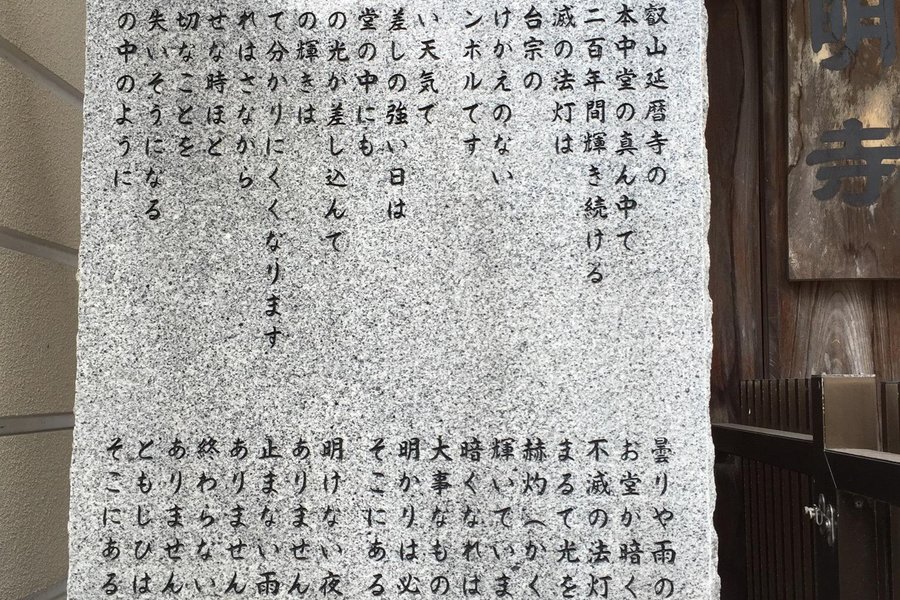 明寺
叡山延暦寺の
本中堂の真ん中で
二百年間輝き続ける
滅の法灯は
台宗の
けかえのない
ンボルです
い天気で
差しの強い日は
堂の中にも
の光が差し込んで
の輝きは
て分かりにくくなります
れはさながら
せな時ほど
切なことを
失いそうになる
の中のように
曇りや雨の
お堂が暗く
不滅の法灯
まるで光を
赫灼（かく
輝いていま
暗くなれば
大事なもの
明かりは必
そこにある
明けない夜
ありません
止まない雨
ありません
終わらない
ありません
ともしびは
そこにある